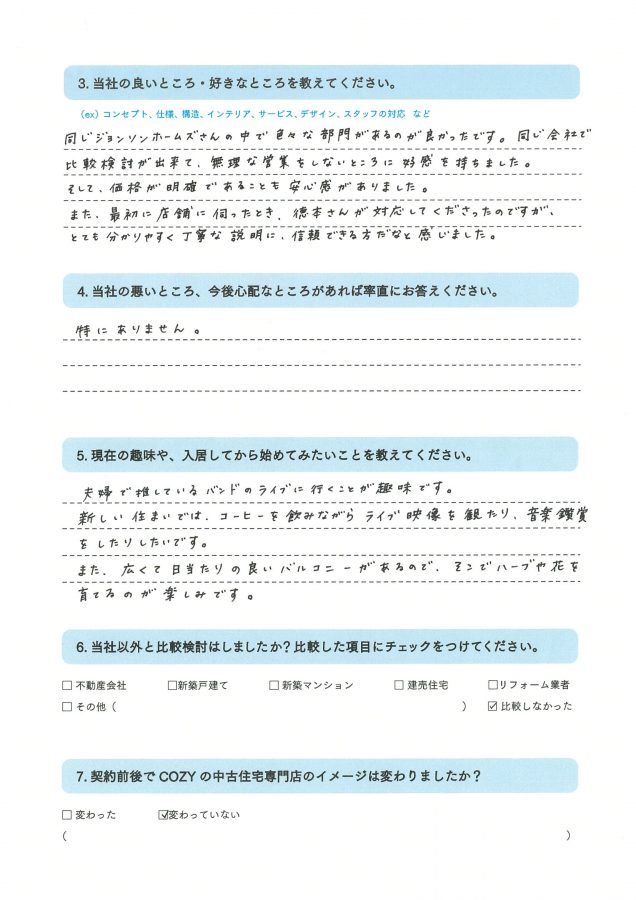 3. 当社の良いところ・好きなところを教えてください。
（ex）コンセプト、仕様、構造、インテリア、サービス、デザイン、スタッフの対応 など
同じジョンソンホームズさんの中で色々な部門があるのが良かったです。同じ会社で
比較検討が出来て、無理な営業をしないところに好感を持ちました。
そして、価格が明確であることも安心感がありました。
また、最初に店舗に伺ったとき、徳本さんが対応してくださったのですが、
とても分かりやすく丁寧な説明に、信頼できる方だなと感じました。
4. 当社の悪いところ、今後心配なところがあれば率直にお答えください。
特にありません。
5. 現在の趣味や、入居してから始めてみたいことを教えてください。
夫婦で推しているバンドのライブに行くことが趣味です。
新しい住まいでは、コーヒーを飲みながらライブ映像を観たり、音楽鑑賞
をしたりしたいです。
また、広くて日当たりの良いバルコニーがあるので、そこでハーブや花を
育てるのが楽しみです。
6. 当社以外と比較検討はしましたか？比較した項目にチェックをつけてください。
□ 不動産会社 □新築戸建て □ 新築マンション □ 建売住宅 □リフォーム業者
□ その他（ ） ☑ 比較しなかった
7. 契約前後で COZY の中古住宅専門店のイメージは変わりましたか？
□ 変わった ☑変わっていない
（ ）